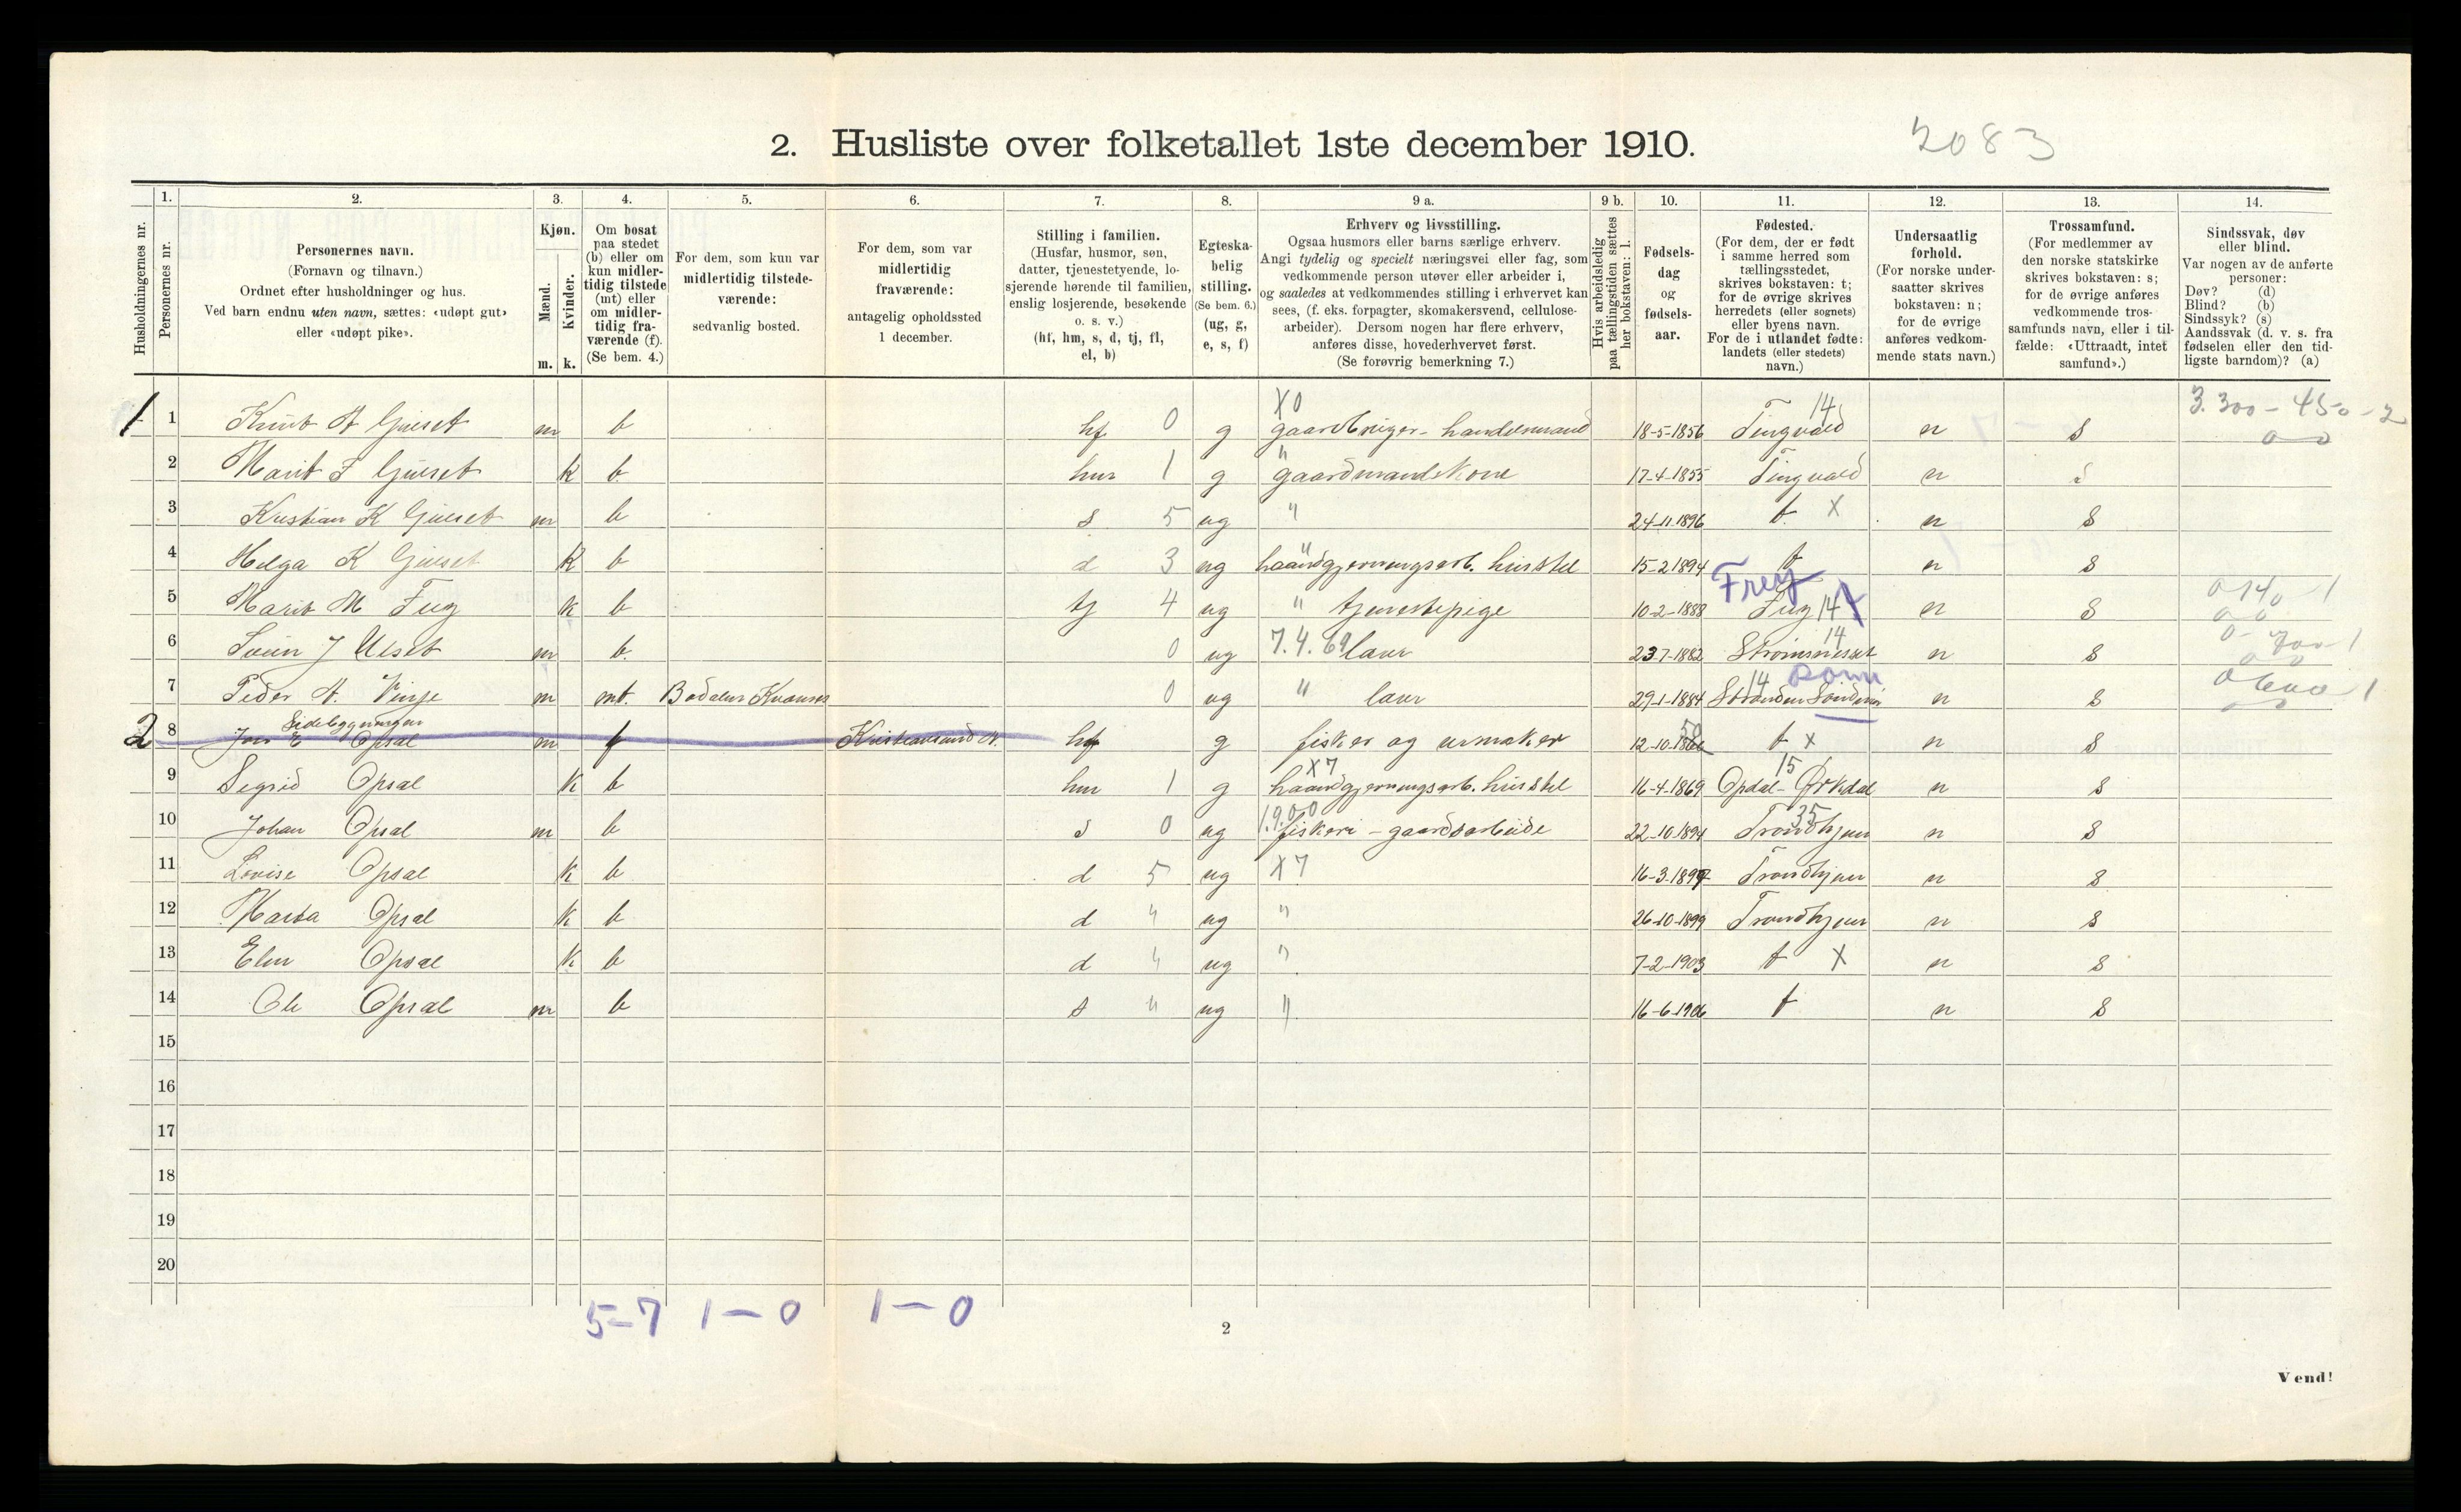 2. Husliste over folketallet 1ste december 1910.
2083
Husholdningernes nr.
1. Personernes nr.
2. Personernes navn. (Fornavn og tilnavn.) Ordnet efter husholdninger og hus. Ved barn endnu uten navn, sættes: «udøpt gut» eller «udøpt pike».
3. Kjøn. Mænd. m. Kvinder. k.
4. Om bosat paa stedet (b) eller om kun midlertidig tilstede (mt) eller om midlertidig fraværende (f). (Se bem. 4.)
5. For dem, som kun var midlertidig tilstedeværende: sedvanlig bosted.
6. For dem, som var midlertidig fraværende: antagelig opholdssted 1 december.
7. Stilling i familien. (Husfar, husmor, søn, datter, tjenestetyende, losjerende hørende til familien, enslig losjerende, besøkende o. s. v.) (hf, hm, s, d, tj, fl, el, b)
8. Egteskabelig stilling. (Se bem. 6.) (ug, g, e, s, f)
9 a. Erhverv og livsstilling. Ogsaa husmors eller barns særlige erhverv. Angi tydelig og specielt næringsvei eller fag, som vedkommende person utøver eller arbeider i, og saaledes at vedkommendes stilling i erhvervet kan sees, (f. eks. forpagter, skomakersvend, cellulosearbeider). Dersom nogen har flere erhverv, anføres disse, hovederhvervet først. (Se forøvrig bemerkning 7.)
9 b. Hvis arbeidsledig paa tællingstiden sættes her bokstaven: l.
10. Fødselsdag og fødselsaar.
11. Fødested. (For dem, der er født i samme herred som tællingsstedet, skrives bokstaven: t; for de øvrige skrives herredets (eller sognets) eller byens navn. For de i utlandet fødte: landets (eller stedets) navn.)
12. Undersaatlig forhold. (For norske undersaatter skrives bokstaven: n; for de øvrige anføres vedkommende stats navn.)
13. Trossamfund. (For medlemmer av den norske statskirke skrives bokstaven: s; for de øvrige anføres vedkommende trossamfunds navn, eller i tilfælde: «Uttraadt, intet samfund».)
14. Sindssvak, døv eller blind. Var nogen av de anførte personer: Døv? (d) Blind? (b) Sindssyk? (s) Aandssvak (d. v. s. fra fødselen eller den tidligste barndom)? (a)
X0 14 3.300 - 450 - 2
1 1 Knut A Gulset m b hf 0 g gaardbruger - handelsmand 18-5-1856 Tingvold n s
2 Marit I Gulset k b hm 1 g " gaardmandskone 17-4-1855 Tingvold n s
3 Kristian K Gulset m b s 5 ug " 24-11-1896 t X n s
4 Helga K Gulset k b d 3 ug " haandgjerningsarb. husstel 15-2-1894 t n s
Frey
5 Marit M k b tj 4 ug " tjenestepige 10-2-1888 14 n s
6 J Ulset m b 0 ug 7.4.69 23-7-1882 Strømsneset 14 n s
7 Peder A. Vinje m mt. 0 ug " 29-1-1884 14 n s
Sidebygningen
2 8 Jon E Opsal m f Kristiansund N. hf g fisker og urmaker 12-10- t X n s
9 Segrid Opsal k b hm 1 g X7 haandgjerningsarb. husstel 16-4-1869 Opdal - Ørkdal 15 n s
10 Johan Opsal m b s 0 ug 1.9.00 fiskeri - gaardsarbeide 22-10-1894 Trondhjem 35 n s
11 Lovise Opsal k b d 5 ug X7 16-3-1897 Trondhjem n s
12 Marta Opsal k b d " ug " 26-10-1899 Trondhjem n s
13 Elen Opsal k b d " ug " 7-2-1903 t X n s
14 Ole Opsal m b s " ug " 16-6-1906 t n s
15
16
17
18
19
20
5-7 1-0 1-0
2
Vend!